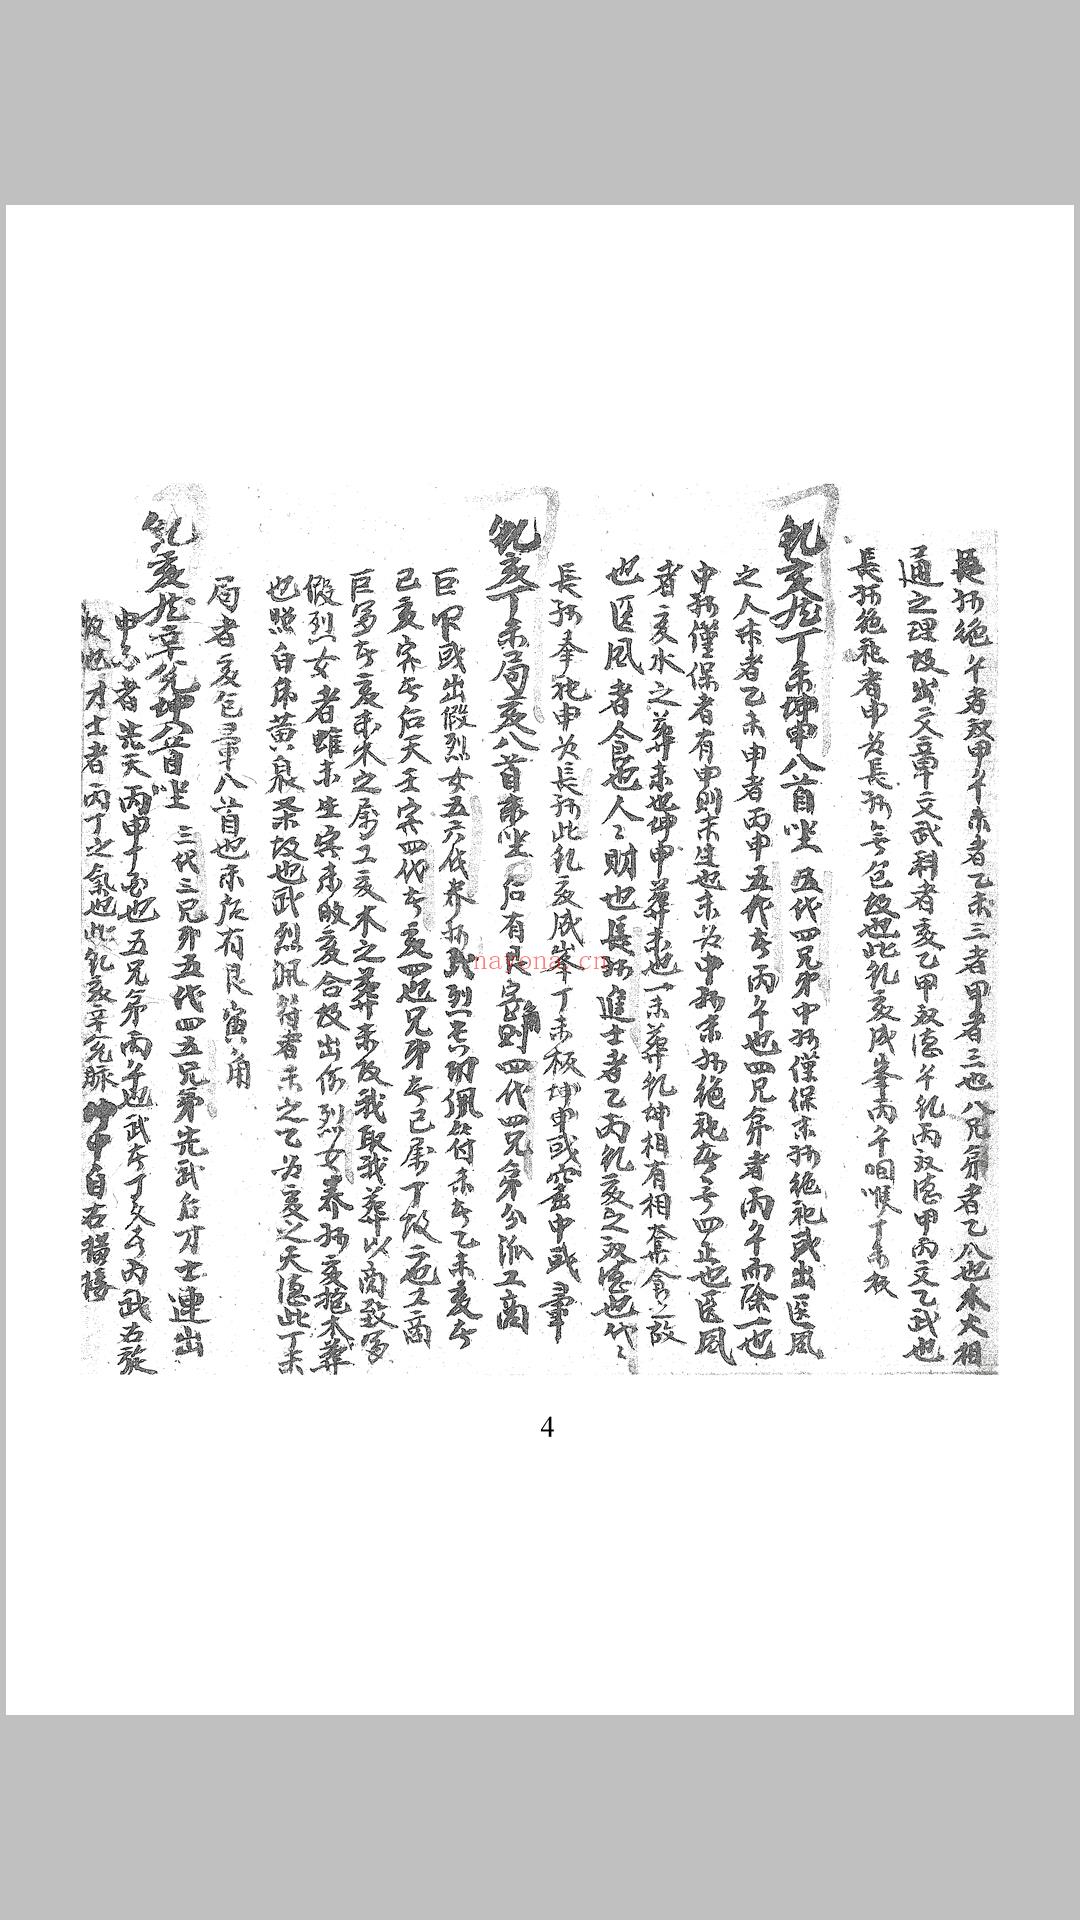 長孫絶午者双甲午未者乙未三者甲者三也八兄弟者乙八也木火相
通之理故出文章文武科者亥乙甲双德午乾丙双德甲丙文乙武也
長孫絶祀者申为長孫無包故也此乾亥成峯丙午咽喉丁未板
乾亥龙丁未坤申八首坐 五代四兄弟中孫僅保末孫絶祀或出医風
之人未者乙未申者丙申五代者丙午也四兄弟者丙午而除一也
中孫僅保者有申則未生也未为中孫末孫絶祀者亡四正也医風
者亥水之葬未也坤申葬未也一未葬乾坤相有相奪食之故
也医風者食也人〻財也長孫進士者乙丙乾亥之双德也代〻
長孫奉祀申为長孫此乾亥成峯丁未板坤申或窑中或暈
乾亥丁未局亥八首未坐 后有艮寅角則四代四兄弟分派工商
巨富或出假烈女五六代养孫武烈一吉功佩符未者乙未亥者
己亥寅者后天壬寅四代者亥四也兄弟者己属丁故也工商
巨富者亥未木之属工亥木之葬未故我取我葬以商致富
假烈女者雖未生寅未敗亥合故出伤烈女养孫亥抱木葬
也照白虎黄泉杀故也武烈佩符者未之乙为亥之天德此丁未
局者亥包暈八首也未后有艮寅角
乾亥龙辛兌坤八首坐 三代三兄弟五代四五兄弟先武后才士連出
申 者先天丙申 也五兄弟丙午也武者丁火者丙武右旋
故也才士者丙丁之氣也此乾亥辛兌脉坤申自右橫接
nayona.cn
4